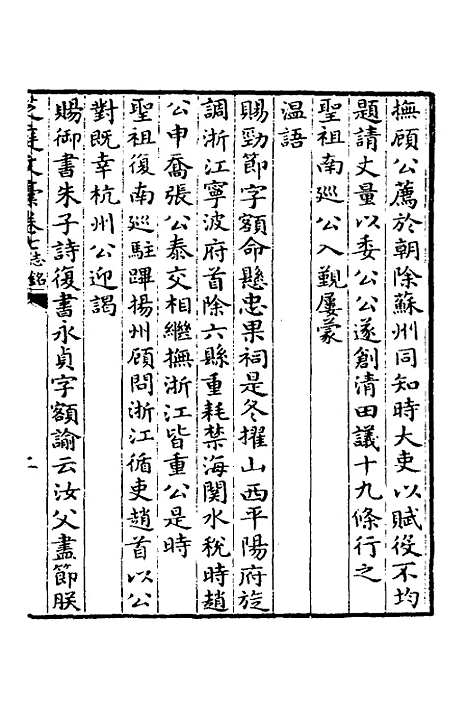 撫顧公薦於朝除蘇州同知時大吏以賦役不均
題請丈量以委公公遂創清田議十九條行之
聖祖南巡公入覲屢蒙
溫語
賜勁節字額命懸忠果祠是冬擢山西平陽府旋
調浙江寧波府首除六縣重耗禁海関水稅時趙
公申喬張公泰交相繼撫浙江皆重公是時
聖祖復南巡駐蹕揚州顧問浙江循吏趙首以公
對既幸杭州公迎謁
賜御書朱子詩復書永貞字額諭云汝父盡節朕
芝庭文稾卷七志銘
二